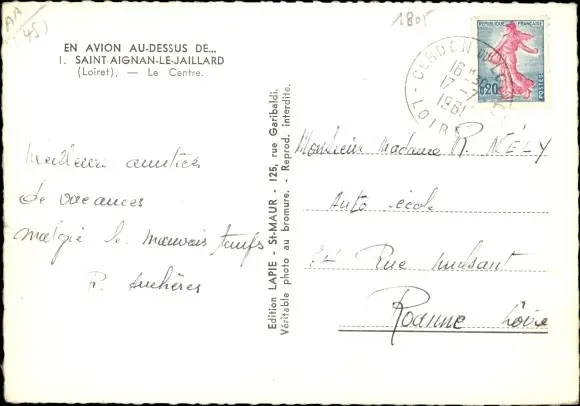 AA
(45)
1805
EN AVION AU-DESSUS DE...
1. SAINT-AIGNAN-LE-JAILLARD
(Loiret). — Le Centre.
Meilleures amitiés
de vacances
malgré le mauvais temps
R.
Edition LAPIE - St-MAUR - 125, rue Garibaldi.
Véritable photo au bromure. - Reprod. interdite.
REPUBLIQUE FRANÇAISE
0,20
POSTES
CERDON DU
16 H 30
17 -7
1961
LOIRET
Monsieur Madame R. NÉLY
Auto école
Rue
Roanne Loire